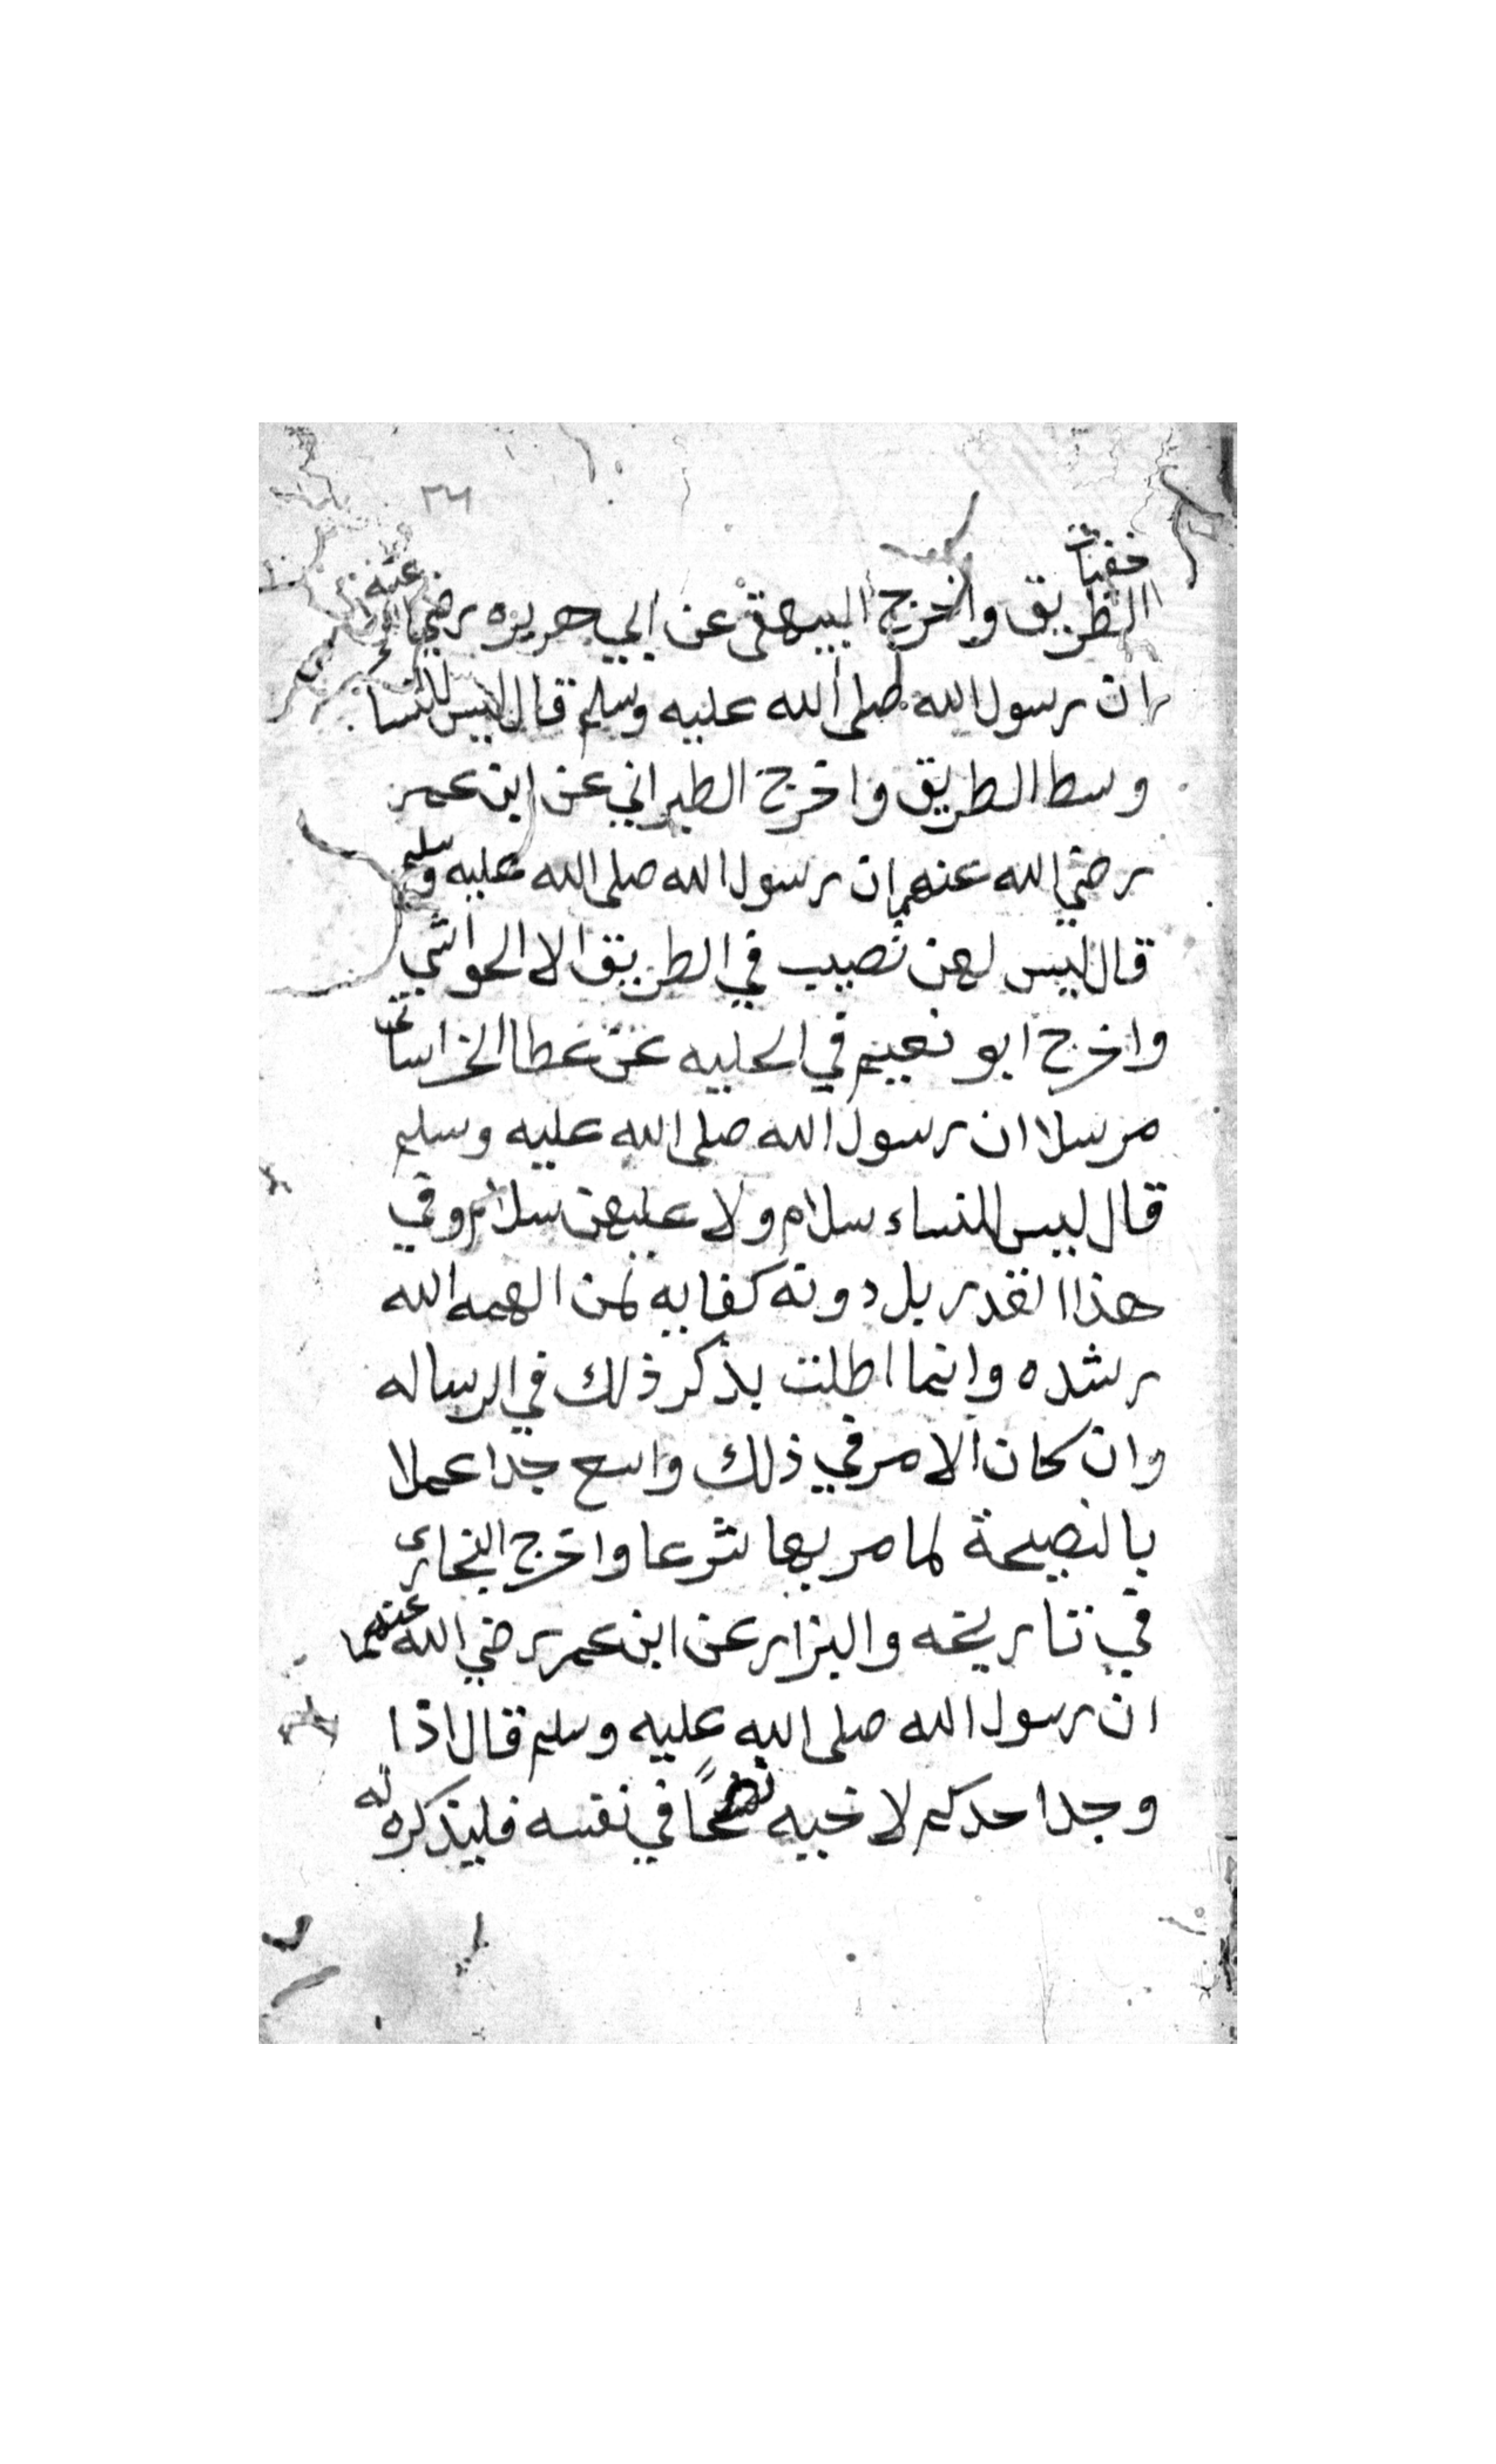 ٣٦
الطريق واخرج البيهقى عن ابي هريره رضي الله عنه
ان رسول الله صلى الله عليه وسلم قال ليس للنسا
وسط الطريق واخرج الطبراني عن ابن عمر
رضي الله عنهما ان رسول الله صلى الله عليه وسلم
قال ليس لهن نصيب في الطريق الا الحواشي
واخرج ابو نعيم في الحليه عن عطا الخراساني
مرسلا ان رسول الله صلى الله عليه وسلم
قال ليس للنساء سلام ولا عليهن سلام وفي
هذا القدر بل دونه كفايه لمن الهمه الله
رشده وانما اطلت بذكر ذلك في الرساله
وان كان الامر في ذلك واسع جدا عملا
بالنصيحة لمامر بها شرعا واخرج البخاري
في تاريخه والبزار عن ابن عمر رضي الله عنهما
ان رسول الله صلى الله عليه وسلم قال اذا
وجد احدكم لاخيه نصحًا في نفسه فليذكره له